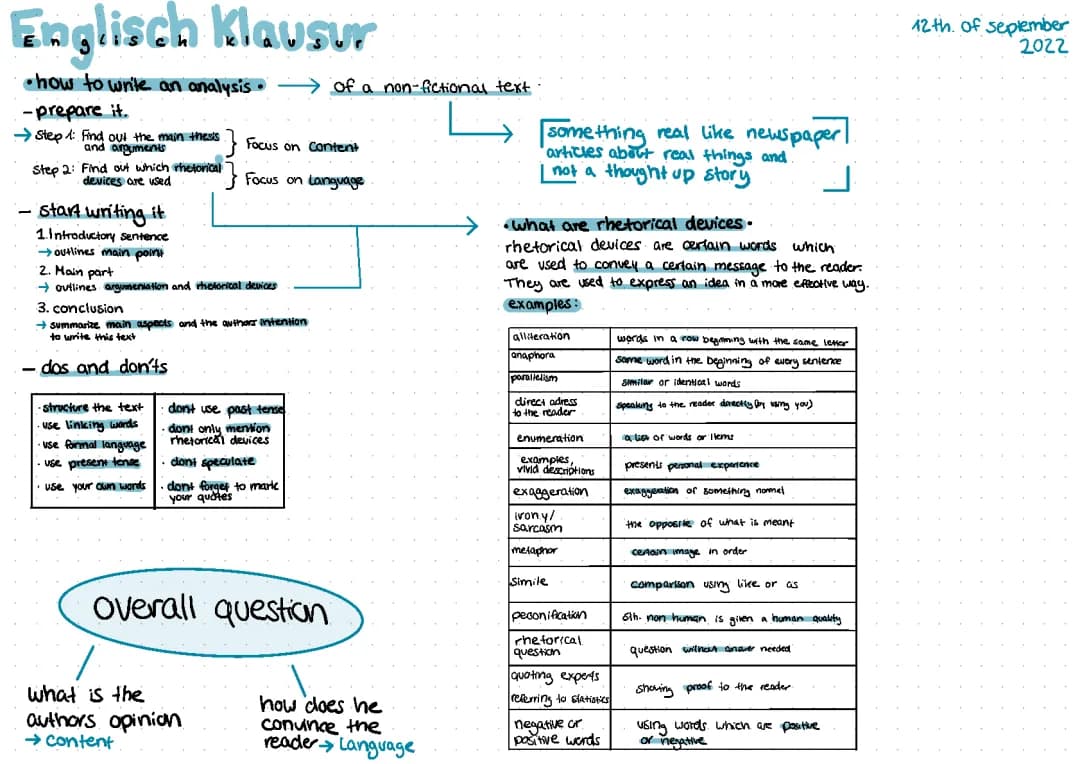 Englisch Klausur
Englisch klausur
12th. of september
2022
• how to write an analysis • → of a non-fictional text
something real like newspaper
articles about real things and
not a thought up story
- prepare it.
→ Step 1: Find out the main thesis
and arguments
Focus on content
Step 2: Find out which rhetorical
devices are used
Focus on Language
- start writing it
1. Introductory sentence
→ outlines main point
2. Main part
→ outlines argumentation and rhetorical devices
3. conclusion
→ summarize main aspects and the authors intention
to write this text
- dos and don'ts
· structure the text
· use linking words
· use formal language
· use present tense
· use your own words
· dont use past tense
· dont only mention
rhetorical devices
· dont speculate
· dont forget to mark
your quotes
overall question
what is the
authors opinion
→ content
how does he
convince the
reader → Language
• what are rhetorical devices •
rhetorical devices are certain words which
are used to convey a certain message to the reader.
They are used to express an idea in a more effective way.
examples:
alliteration words in a row beginning with the same letter
anaphora same word in the beginning of every sentence
parallelism similar or identical words
direct adress
to the reader speaking to the reader directly (by using you)
enumeration a list of words or items
examples,
vivid descriptions presents personal experience
exaggeration exaggeration of something normel
irony/
sarcasm the opposite of what is meant
metaphor certain image in order
simile comparison using like or as
pesonification Sth. non human is given a human quality
rhetorical
question question without answer needed
quoting experts
referring to statistics showing proof to the reader
negative or
positive words using words which are positive
or negative